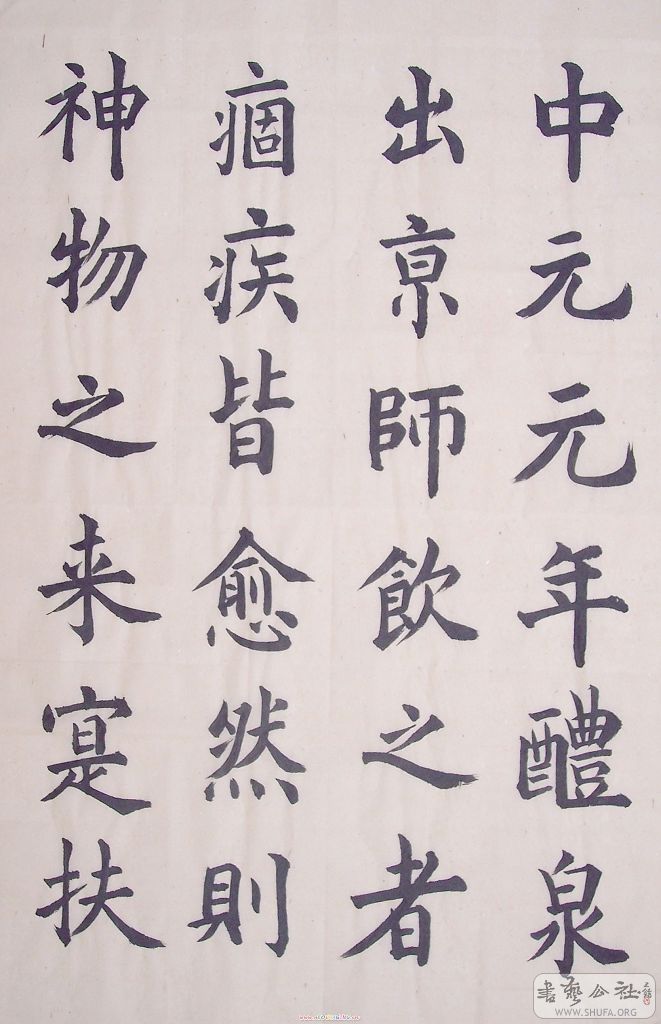 中元元年醴泉
出京師飲之者
痼疾皆愈然則
神物之来寔扶
書藝公社
WWW.SHUFA.ORG